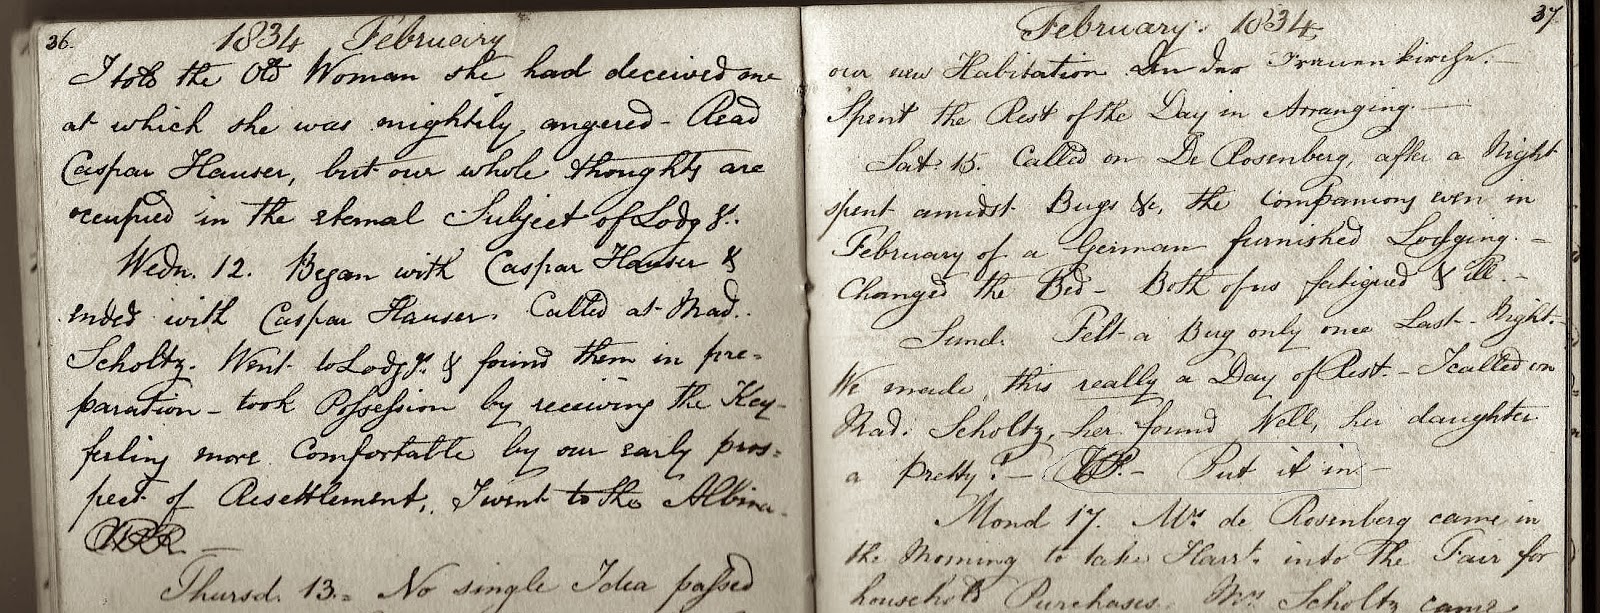 36.
1834 February
I told the Old Woman she had deceived me
at which she was mightily angered - Read
Caspar Hauser, but our whole thoughts are
occupied in the eternal Subject of Lodgs.
Wedn. 12. Began with Caspar Hauser &
ended with Caspar Hauser. Called at Mad.
Scholtz. Went to Lodgs. & found them in pre=
paration - took Possession by receiving the Key -
feeling more Comfortable by our early pros=
pect of Resettlement. I went to the Albina
Thursd. 13. = No single Idea passed
February. 1834.
37.
our new Habitation An der Frauenkirche. -
Spent the Rest of the Day in Arranging. -
Sat. 15. Called on De Rosenberg, after a Night
spent amidst Bugs &c, the Companions even in
February of a German furnished Lodging. -
Changed the Bed - Both of us fatigued & ill. -
Sund. Felt a Bug only once Last - Night. -
We made this really a Day of Rest. - I called on
Mad. Scholtz, her found Well, her daughter
a pretty? - Put it in -
Mond 17. Mrs de Rosenberg came in
the Morning to take Harrt. into the Fair for
household Purchases. Mrs Scholtz came